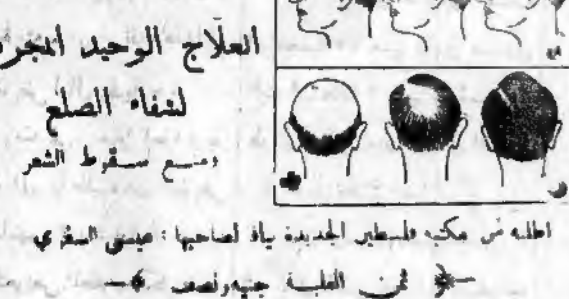 العلاج الوحيد المجرب
لشفاء الصلع
ومنع سقوط الشعر
اطلبه من مكتبة فلسطين الجديدة يافا لصاحبها : عيسى السفري
ثمن العلبة جنيه ونصف